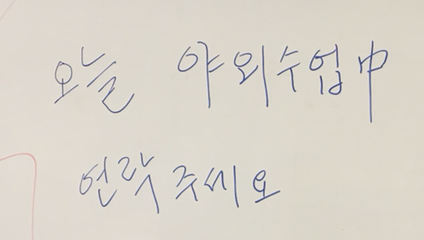 오늘 야외수업中
연락주세요